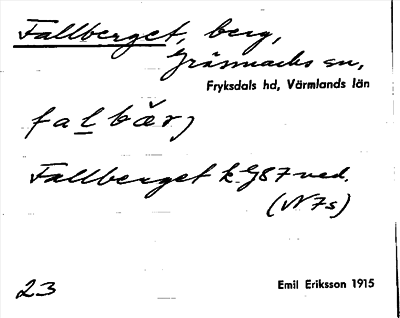 Fallberget, berg,
Gräsmarks sn,
Fryksdals hd, Värmlands län
falbær,
Fallberget k. G87 ned.
(N7s)
23
Emil Eriksson 1915